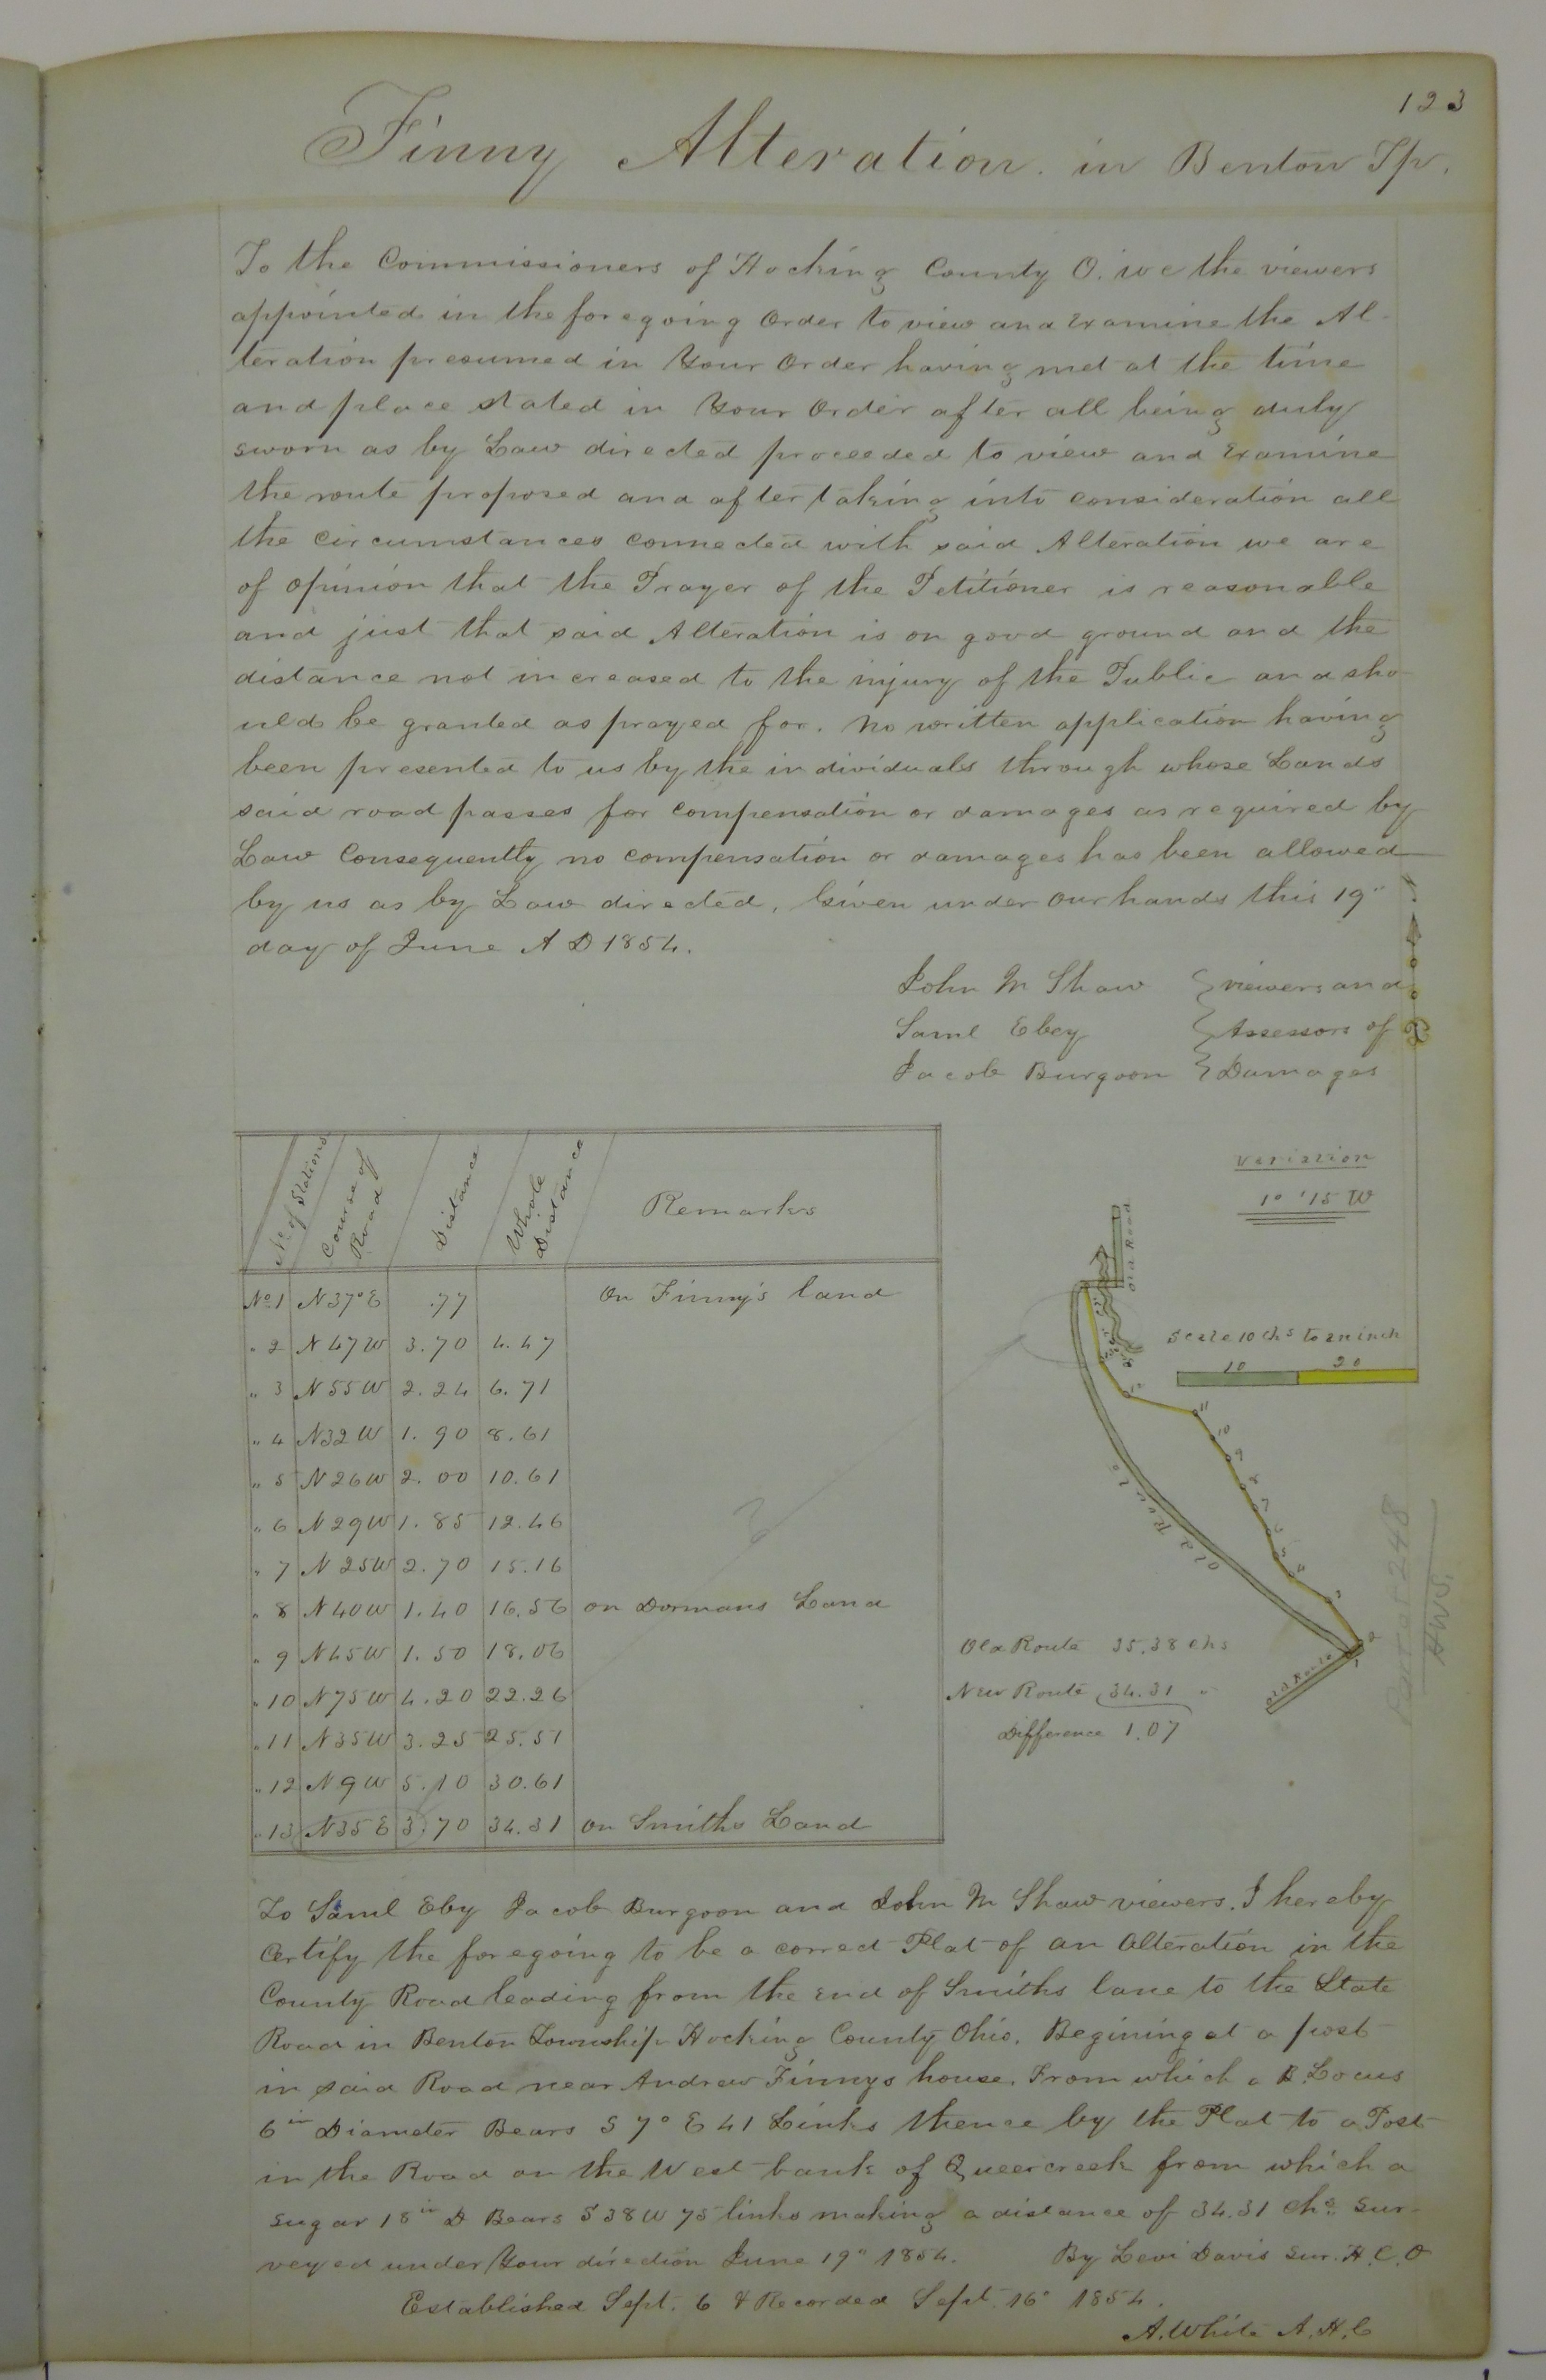 123
Finny Alteration. in Benton Tp.
To the Commissioners of Hocking County O. we the viewers
appointed in the foregoing Order to view and Examine the Al-
teration presumed in Your Order having met at the time
and place stated in Your Order after all being duly
sworn as by Law directed proceeded to view and Examine
the route proposed and after taking into consideration all
the Circumstances connected with said Alteration we are
of opinion that the Prayer of the Petitioner is reasonable
and just that said Alteration is on good ground and the
distance not increased to the injury of the Public and sho-
uld be granted as prayed for. No written application having
been presented to us by the individuals through whose Lands
said road passes for compensation or damages as required by
Law Consequently no compensation or damages has been allowed
by us as by Law directed, Given under our hands this 19"
day of June A D 1854.
John M Shaw } viewers and
Saml Ebey } Assessors of
Jacob Burgoon } Damages
No of Stations Course of Road Distance Whole Distance Remarks
No 1 N37°E .77 On Finny's land
" 2 N47W 3.70 4.47
" 3 N55W 2.24 6.71
" 4 N32W 1.90 8.61
" 5 N26W 2.00 10.61
" 6 N29W 1.85 12.46
" 7 N25W 2.70 15.16
" 8 N40W 1.40 16.56 on Dormans Land
" 9 N45W 1.50 18.06
" 10 N75W 4.20 22.26
" 11 N35W 3.25 25.51
" 12 N9W 5.10 30.61
" 13 N35E 3.70 34.31 on Smiths Land
variation
1° '15 W
Old Road
Scale 10 chs to an inch
10 20
11
10
9
8
7
6
5
4
3
2
1
Old Route
Old Route
Old Route 35.38 chs
New Route 34.31 "
Difference 1.07
248
HWS.
To Saml Eby Jacob Burgoon and John M Shaw viewers. I hereby
Certify the foregoing to be a correct Plat of an Alteration in the
County Road leading from the End of Smiths lane to the State
Road in Benton Township Hocking County Ohio. Begining at a post
in said Road near Andrew Finnys house. From which a B. Locus
6 in Diameter Bears S 7° E 41 Links thence by the Plat to a Post
in the Road on the West bank of Queercreek from which a
Sugar 18 in D Bears S 38 W 75 links making a distance of 34.31 chs Sur-
veyed under Your direction June 19" 1854. By Levi Davis Sur. H. C. O
Established Sept. 6 & Recorded Sept. 16" 1854.
A. White A. H. C